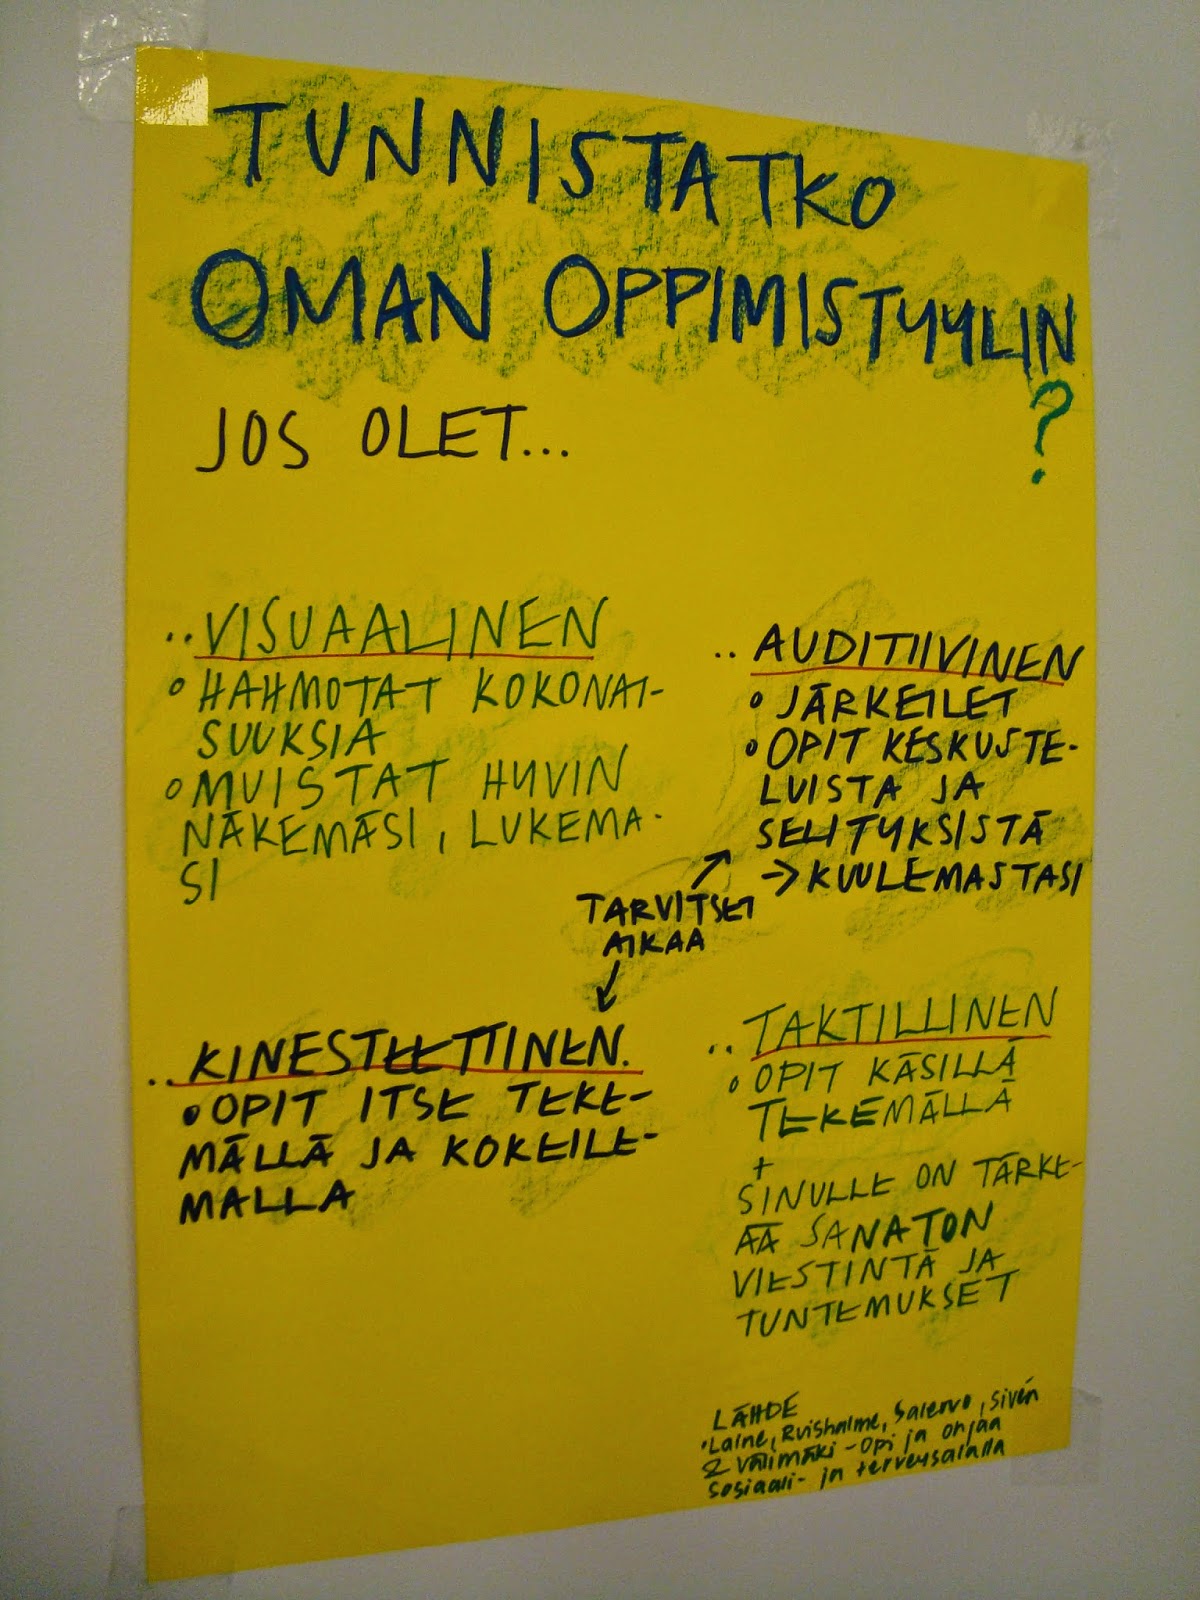 TUNNISTATKO
OMAN OPPIMISTYYLIN
?
JOS OLET...
..VISUAALINEN
• HAHMOTAT KOKONAI-
SUUKSIA
• MUISTAT HYVIN
NÄKEMÄSI, LUKEMA-
SI
.. AUDITIIVINEN
• JÄRKEILET
• OPIT KESKUSTE-
LUISTA JA
SELITYKSISTÄ
→ KUULEMASTASI
TARVITSET
AIKAA
..KINESTEETTINEN.
• OPIT ITSE TEKE-
MÄLLÄ JA KOKEILE-
MALLA
.. TAKTILLINEN
• OPIT KÄSILLÄ
TEKEMÄLLÄ
+
SINULLE ON TÄRKE-
ÄÄ SANATON
VIESTINTÄ JA
TUNTEMUKSET
LÄHDE
• Laine, Ruishalme, Salervo, Sivén
& Välimäki - Opi ja ohjaa
sosiaali- ja terveysalalla